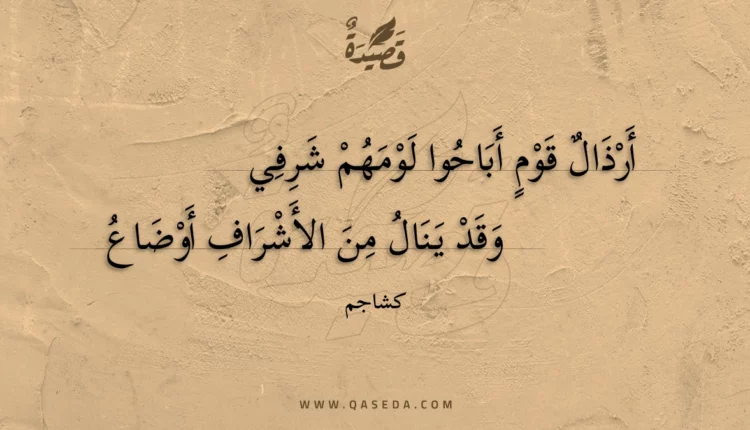 قَصِيدَةٌ
أَرْذَالٌ قَوْمٍ أَبَاحُوا لَوْمَهُمْ شَرِفِي
وَقَدْ يَنَالُ مِنَ الأَشْرَافِ أَوْضَاعُ
كشاجم
WWW.QASEDA.COM